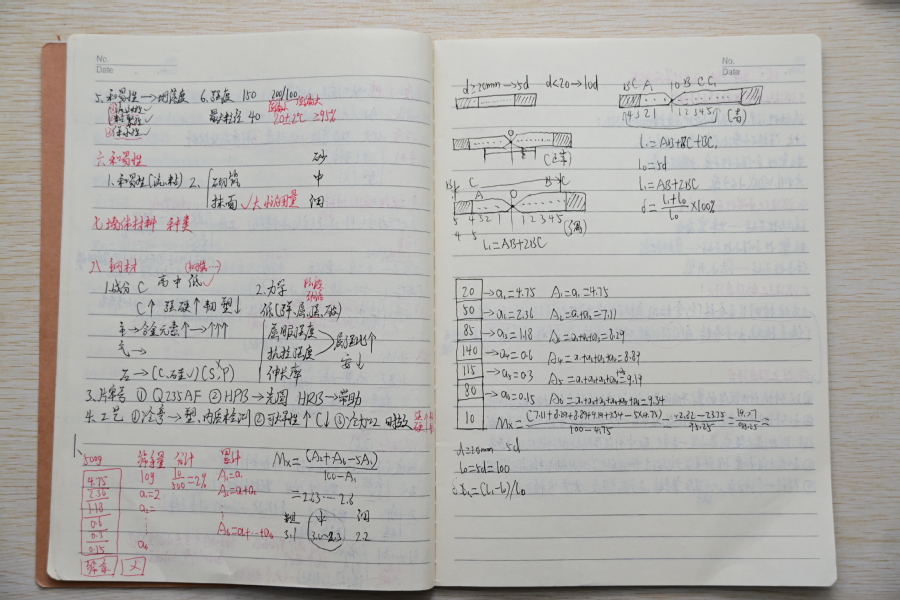 No.
Date
5.和易性→坍落度 6.强度 150 200/100
①流动性✓
②黏聚性✓
③保水性✓
最大粒径 40 20±2℃ ≥95%
六.和易性 砂
1.和易性(流.粘) 2. 砌筑 中
抹面✓大 用量 细
七.墙体材料 种类
八.钢材
1.成分 C 高 中 低✓ 2.力学
C↑ 强硬↑ 韧 塑↓
合金元素↑→↑↑↑
气→
石→(C.硅✓)(S、P)
屈服强度
抗拉强度
伸长率
3.牌号 ① Q235AF ② HPB→光圆 HRB→带肋
4.工艺 ①冷弯→塑,内质检测 ②可焊性↑ C↓
500g 筛余量 分计 累计
4.75 10g 10/500=2% A₁=a₁
2.36 a₁=2 A₂=a₁+a₂
1.18 a₂=
0.6
0.3 A₆=a₁+…+a₆
0.15 a₆
Mx=(A₂+A₆-5A₁)/(100-A₁)
=2.3~2.8
粗 中 细
3.1 2.2
No.
Date
d≥20mm→5d d<20→10d
B C A 1 0 B C C₁
4 3 2 1 1 2 3 4 5
l₁=AB+BC+BC₁
l₀=5d
l₁=AB+2BC
d=(l₁-l₀)/l₀×100%
B C O B C
A
5 4 3 2 1 1 2 3 4 5
l₁=AB+2BC
20 →a₁=4.75 A₁=a₁=4.75
50 →a₂=2.36 A₂=a₁+a₂=7.11
85 →a₃=1.18 A₃=a₁+a₂+a₃=8.29
140 →a₄=0.6 A₄=a₁+a₂+a₃+a₄=8.89
115 →a₅=0.3 A₅=a₁+a₂+a₃+a₄+a₅=9.19
80 →a₆=0.15 A₆=a₁+a₂+a₃+a₄+a₅+a₆=9.34
10 Mx=(7.11+8.29+8.89+9.19+9.34-5×4.75)/(100-4.75)
d=20mm 5d
l₀=5d=100
=(l₁-l₀)/l₀